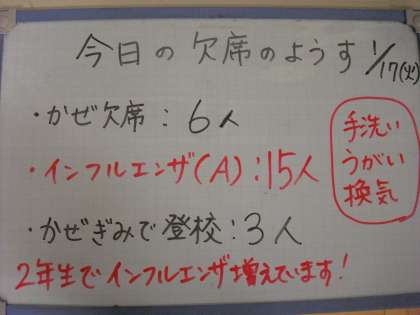 今日の欠席のようす 1/17(火)
・かぜ欠席:6人
・インフルエンザ(A):15人
・かぜぎみで登校:3人
手洗い
うがい
換気
2年生でインフルエンザ増えています!